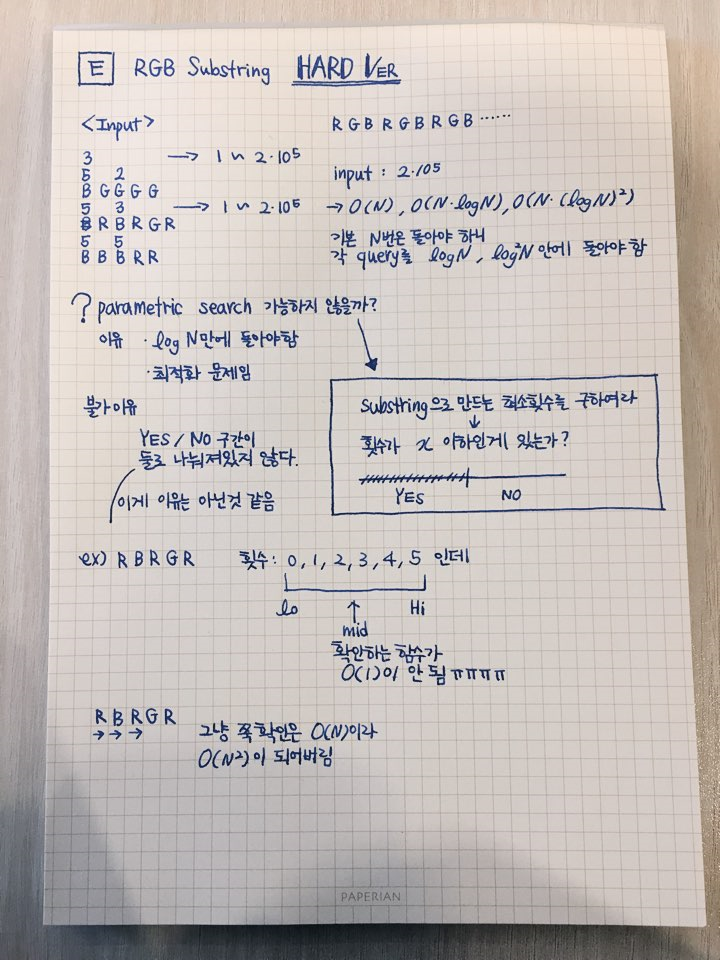 E RGB Substring HARD VER
<Input>
3 → 1 ~ 2·10⁵
5 2
B G G G G
5 3 → 1 ~ 2·10⁵
B R B R G R
5 5
B B B R R
R G B R G B R G B ......
input : 2·10⁵
→ O(N), O(N·logN), O(N·(logN)²)
기본 N번은 돌아야 하니
각 query를 logN, log²N 안에 돌아야 함
? parametric search 가능하지 않을까?
이유 · log N만에 돌아야함
· 최적화 문제임
불가이유
YES / NO 구간이
둘로 나눠져있지 않다.
이게 이유는 아닌것 같음
Substring으로 만드는 최소횟수를 구하여라
↓
횟수가 x 이하인게 있는가?
YES NO
ex) R B R G R 횟수: 0, 1, 2, 3, 4, 5 인데
lo Hi
↑
mid
확인하는 함수가
O(1)이 안 됨 ㅠㅠㅠㅠ
R B R G R
→ → →
그냥 쭉 확인은 O(N)이라
O(N²)이 되어버림
PAPERIAN